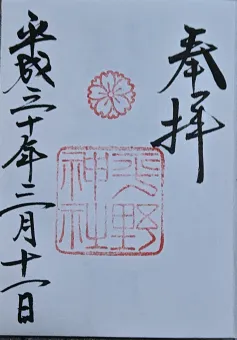 奉拝
平野神社
平成三十年三月十一日